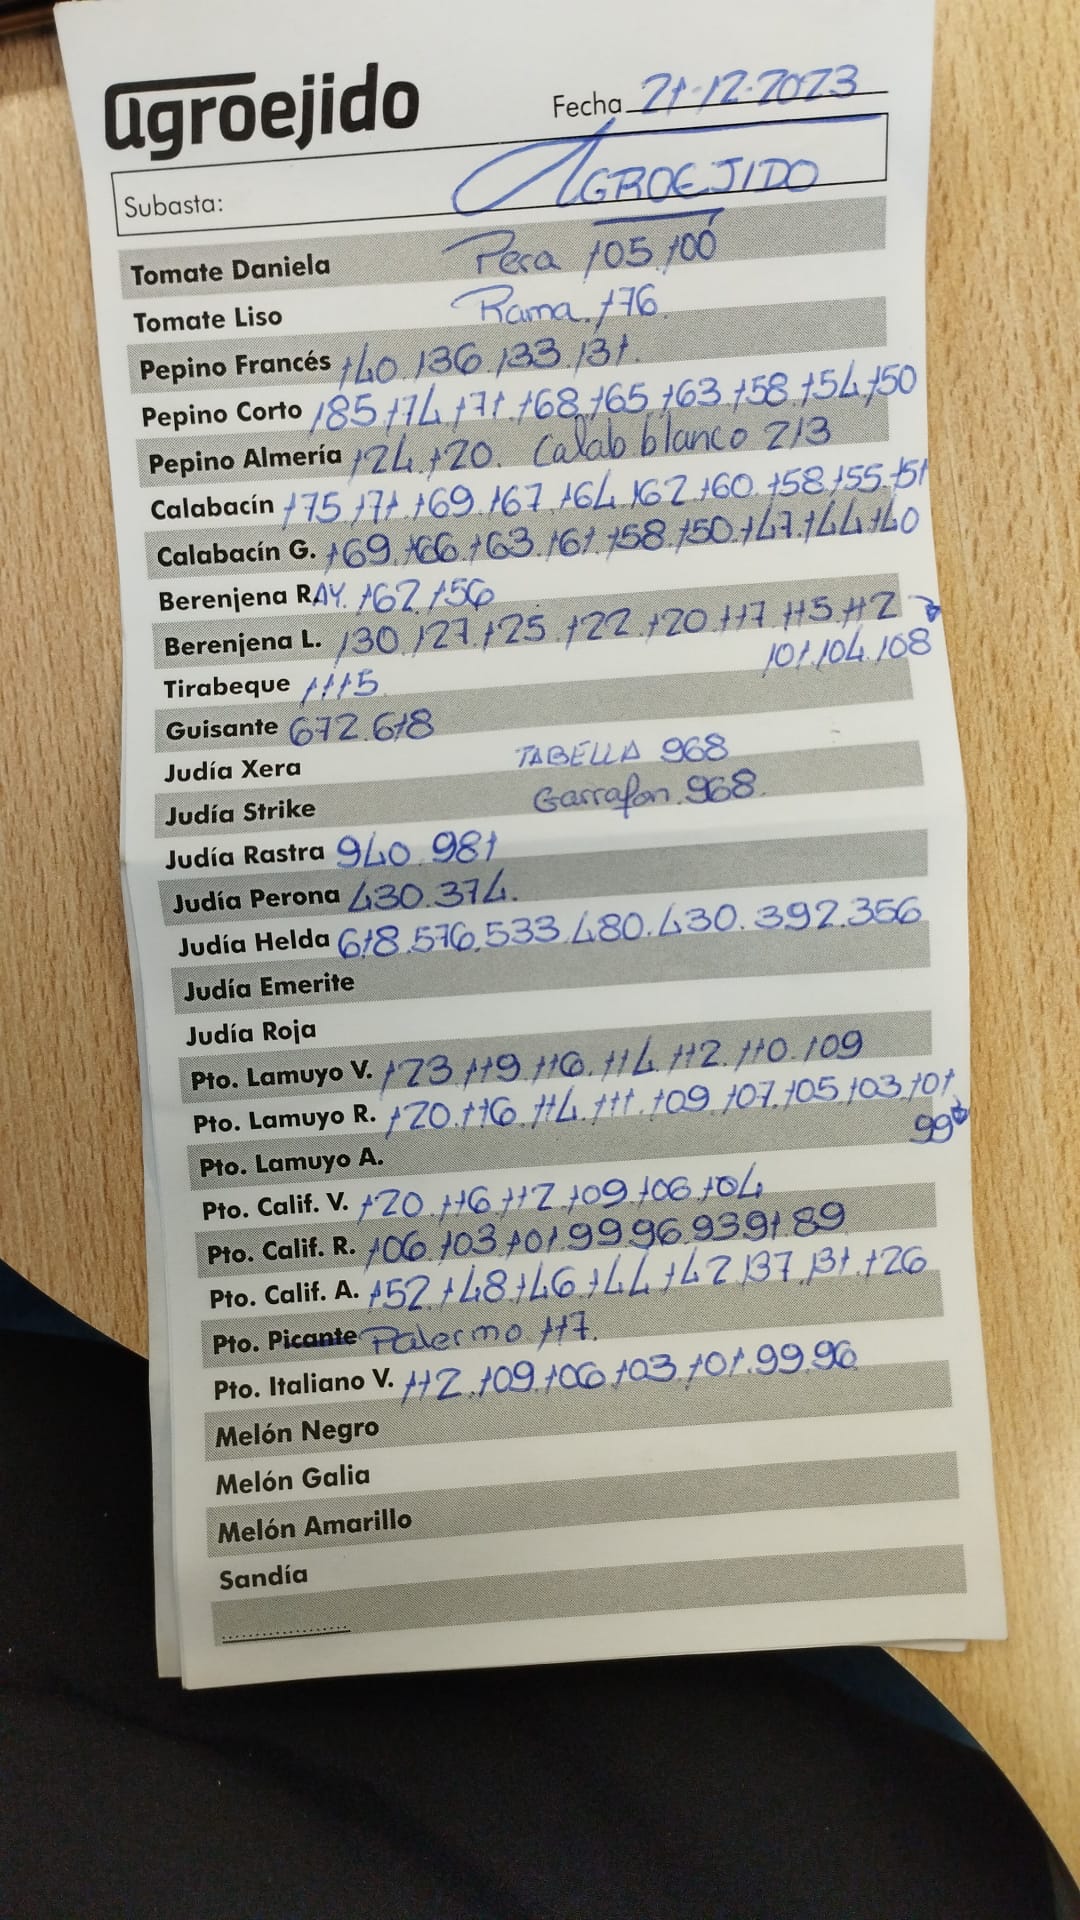 agroejido
Fecha 21-12-2023
Subasta: AGROEJIDO
Tomate Daniela Pera 105.100
Tomate Liso Rama. 176.
Pepino Francés 140.136.133.131.
Pepino Corto 185.174.171.168.165.163.158.154.150
Pepino Almería 124.120. Calab blanco 213
Calabacín 175.171.169.167.164.162.160.158.155.151
Calabacín G. 169.166.163.161.158.150.147.144.140
Berenjena RAY. 162.156
Berenjena L. 130.127.125.122.120.117.115.112
101.104.108
Tirabeque 1115
Guisante 672.618
Judía Xera TABELLA 968
Judía Strike Garrafon.968.
Judía Rastra 940.981
Judía Perona 430.374.
Judía Helda 618.576.533.480.430.392.356
Judía Emerite
Judía Roja
Pto. Lamuyo V. 123.119.116.114.112.110.109
Pto. Lamuyo R. 120.116.114.111.109.107.105.103.101
99
Pto. Lamuyo A.
Pto. Calif. V. 120.116.112.109.106.104
Pto. Calif. R. 106.103.101.99.96.93.91.89
Pto. Calif. A. 152.148.146.144.142.137.131.126
Pto. Picante Palermo 117.
Pto. Italiano V. 112.109.106.103.101.99.96
Melón Negro
Melón Galia
Melón Amarillo
Sandía